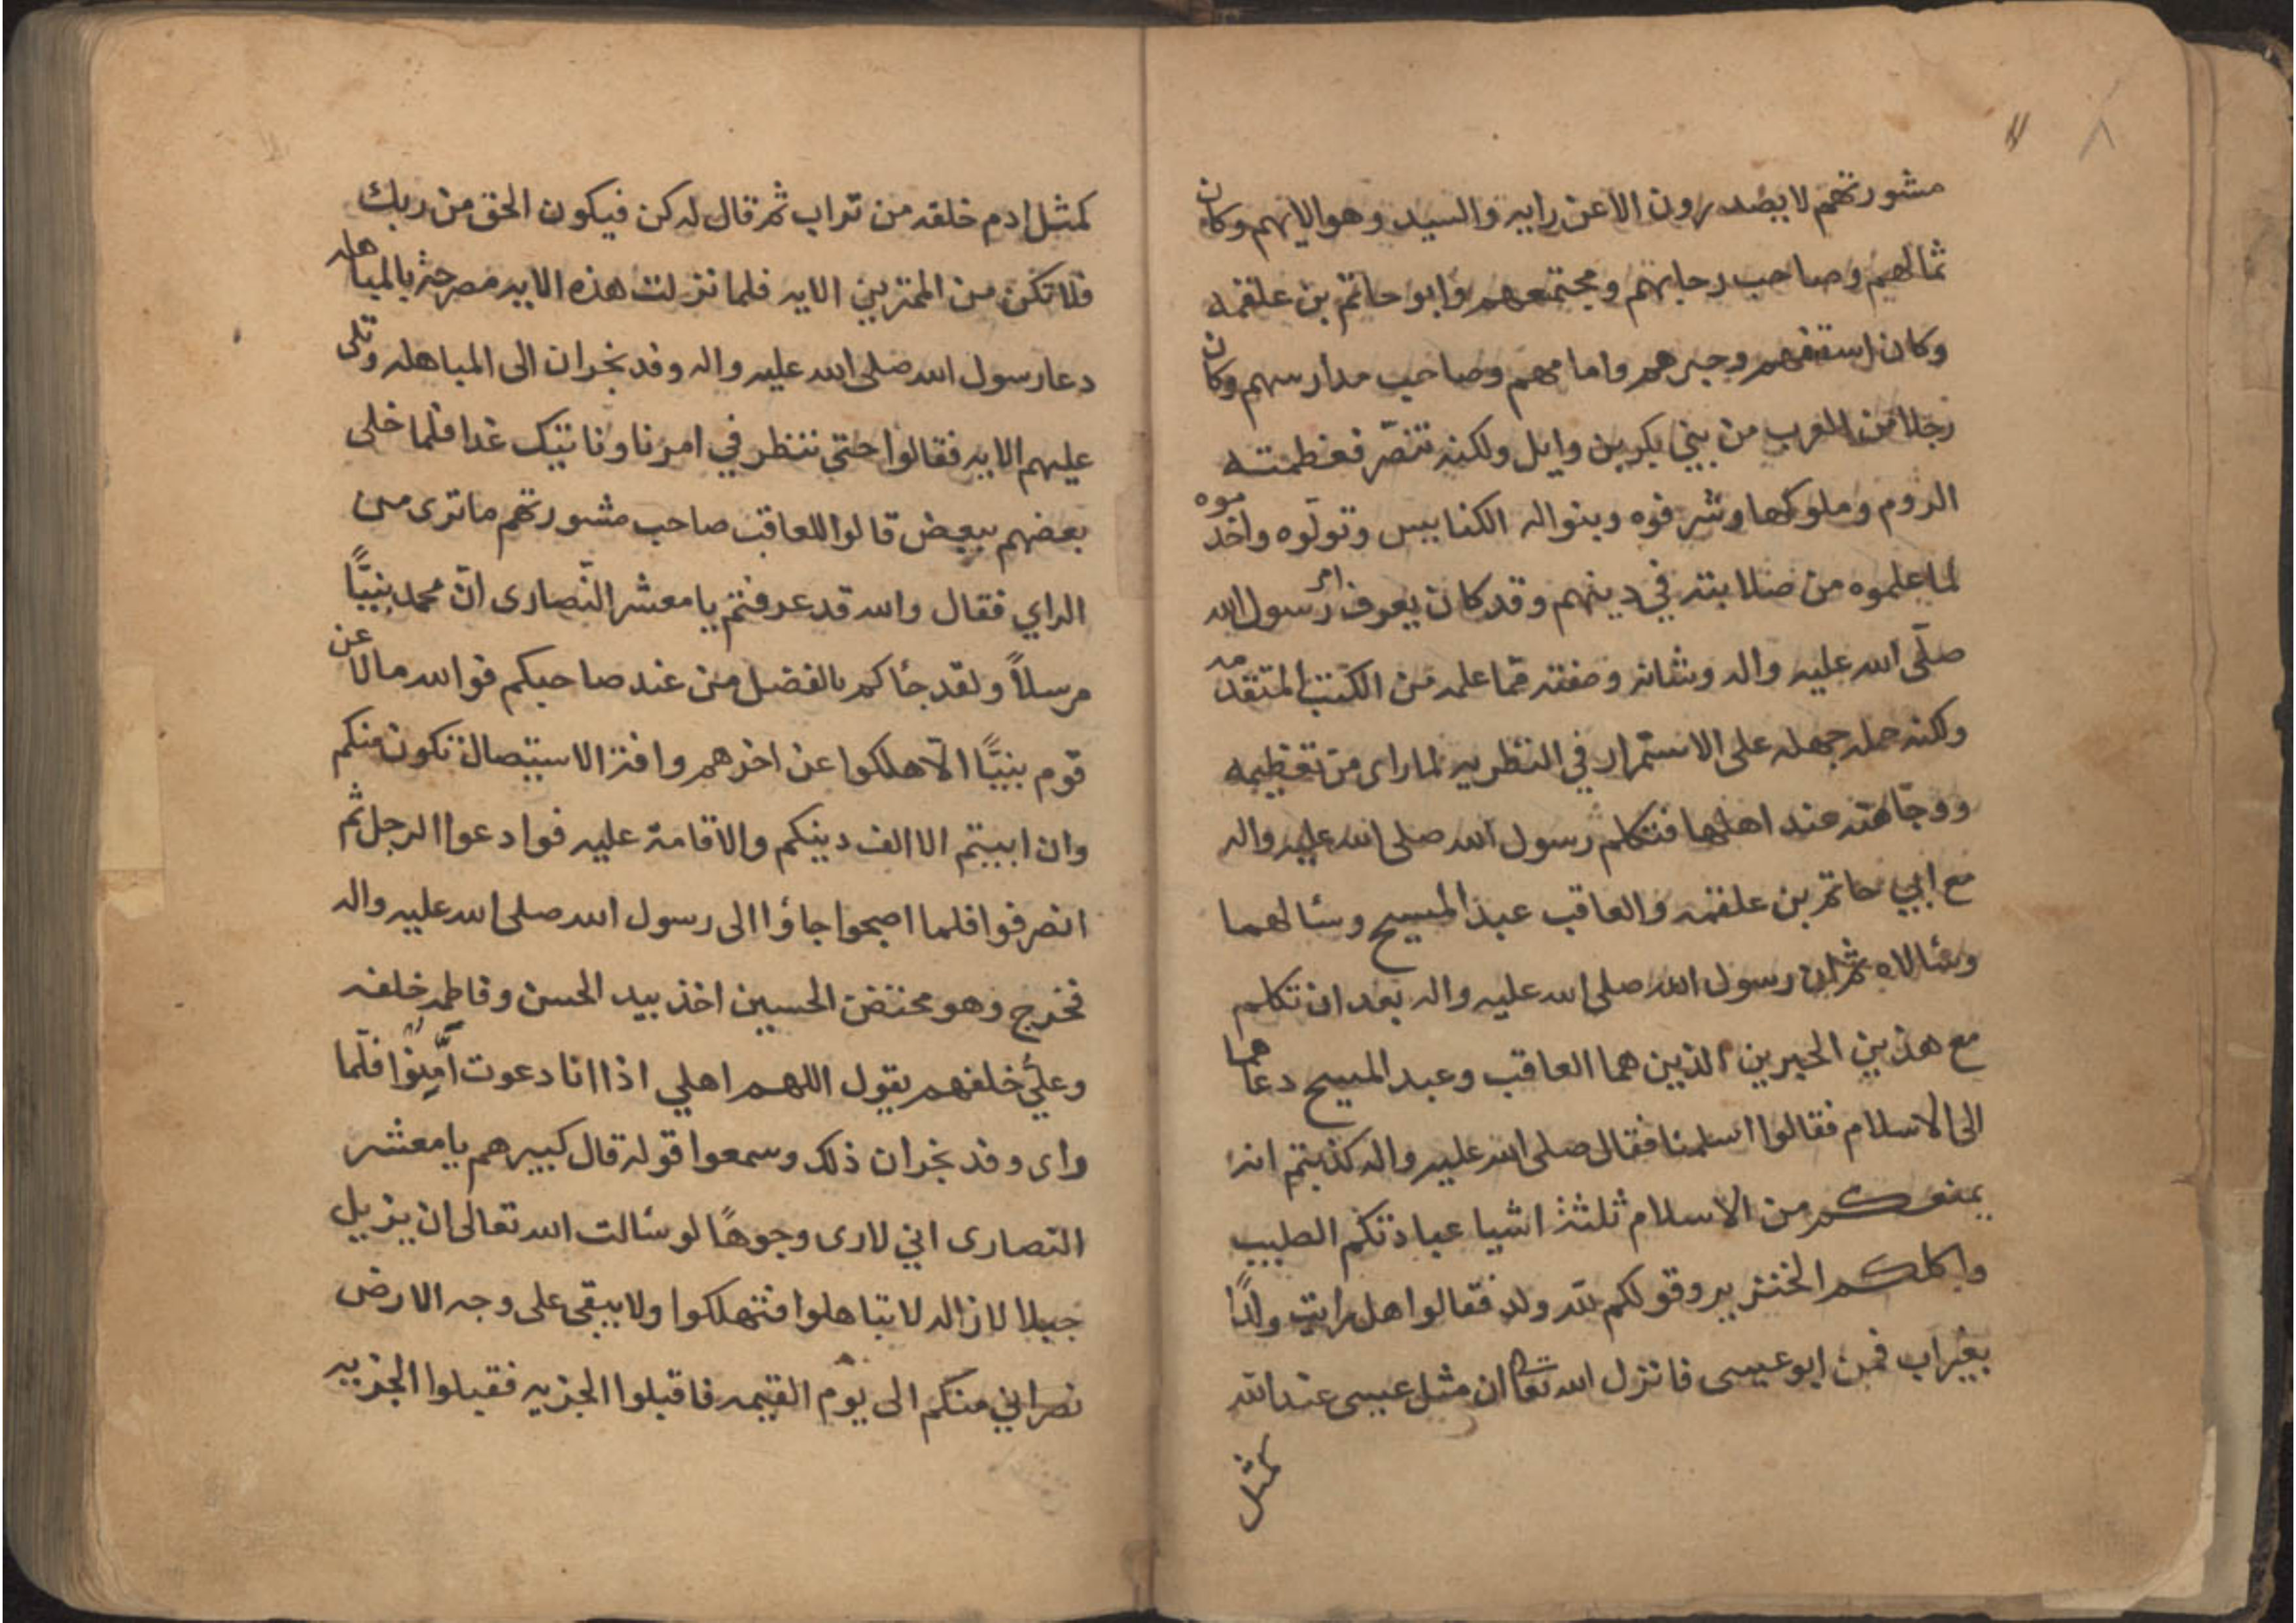 مشورتهم لا يصدرون الا عن رايه والسيد وهو الايهم وكان
ثمالهم وصاحب رحاهم ومجتمعهم وابو حاتم بن علقمه
وكان اسقفهم وحبرهم وامامهم وصاحب مدارسهم وكان
رجلا من العرب من بني بكر بن وايل ولكنه تنصّر فعظمته
الروم وملوكها وشرفوه وبنوا له الكنايس وتولّوه واخدموه
لما علموه من صلابته في دينهم وقد كان يعرف امر رسول الله
صلّى الله عليه واله وشانه وصفته ممّا علمه من الكتب المتقدمه
ولكنه حمله جهله على الاستمرار في النظريه لما راى من تعظيمه
ووجاهته عند اهلها فتكلم رسول الله صلى الله عليه واله
مع ابي حاتم بن علقمه والعاقب عبد المسيح وسئالهما
وسئالاه ثم ان رسول الله صلى الله عليه واله بعد ان تكلم
مع هذين الحبرين الذين هما العاقب وعبد المسيح دعاهما
الى الاسلام فقالوا اسلمنا فقال صلى الله عليه واله كذبتم انه
يمنعكم من الاسلام ثلثة اشيا عبادتكم الصليب
واكلكم الخنزير وقولكم لله ولد فقالوا هل رايت ولدًا
بغير اب فمن ابو عيسى فانزل الله تعا ان مثل عيسى عند الله
كمثل
كمثل ادم خلقه من تراب ثم قال له كن فيكون الحق من ربك
فلا تكن من الممترين الايه فلما نزلت هذه الايه مصرحة بالمباهله
دعا رسول الله صلى الله عليه واله وفد نجران الى المباهله وتلى
عليهم الايه فقالوا حتى ننظر في امرنا وناتيك غدا فلما خلى
بعضهم ببعض قالوا للعاقب صاحب مشورتهم ما ترى من
الراي فقال والله قد عرفتم يا معشر النّصارى انّ محمد نبيًّا
مرسلاً ولقد جأكم بالفضل من عند صاحبكم فوالله ما لاعن
قوم نبيًّا الّا هلكوا عن اخرهم وافتر الاستيصال تكون منكم
وان ابيتم الا الف دينكم والاقامة عليه فوادعوا الرجل ثم
انصرفوا فلما اصبحوا جاؤا الى رسول الله صلى الله عليه واله
فخرج وهو محتضن الحسين اخذ بيد الحسن وفاطمه خلفه
وعليٌّ خلفهم يقول اللهم اهلي اذا انا دعوت أمِّنوا فلّما
راى وفد نجران ذلك وسمعوا قوله قال كبيرهم يا معشر
النصارى اني لارى وجوهًا لو سئالت الله تعالى ان يزيل
جبلا لازاله لا تباهلوا فتهلكوا ولا يبقى على وجه الارض
نصراني منكم الى يوم القيمه فاقبلوا الجزيه فقبلوا الجزيه